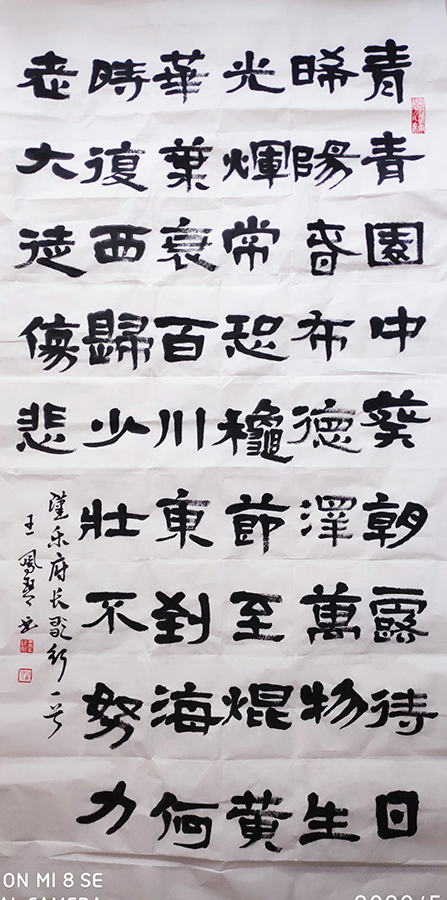 青青園中葵朝露待日
晞陽春布德澤萬物生
光輝常恐龝節至焜黃
華葉衰百川東到海何
時復西歸少壯不努力
老大徒傷悲
漢乐府长歌行一首
王鳳
ON MI 8 SE
CAMERA